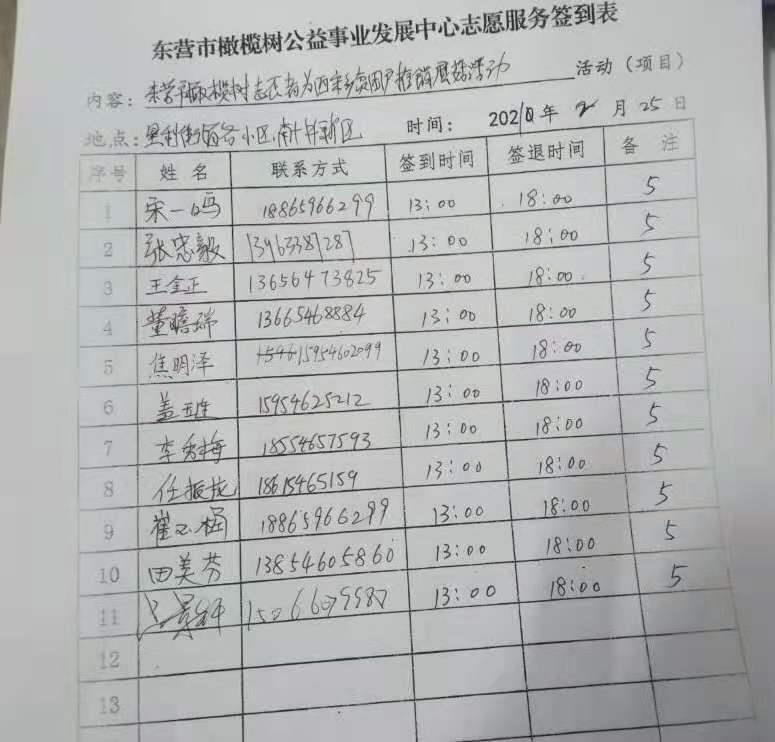 东营市橄榄树公益事业发展中心志愿服务签到表
内容：东营市橄榄树志愿者为西宋乡贫困户推销蘑菇活动 活动（项目）
地点：小区 时间：2020年2月25日
序号 姓名 联系方式 签到时间 签退时间 备注
1 宋一鸣 18865966299 13：00 18：00 5
2 张忠毅 13963387287 13：00 18：00 5
3 王金正 13656473825 13：00 18：00 5
4 董瞻瑞 13665468884 13：00 18：00 5
5 焦明泽 15954602099 13：00 18：00 5
6 盖 15954625212 13：00 18：00 5
7 李秀梅 18554657593 13：00 18：00 5
8 任振龙 18615465159 13：00 18：00 5
9 崔 18865966299 13：00 18：00 5
10 田美芬 13854605860 13：00 18：00 5
11 13：00 18：00 5
12
13